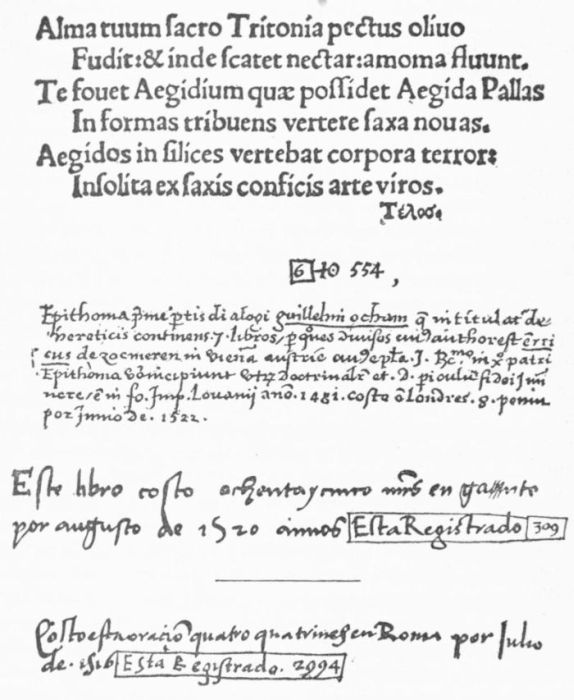 Alma tuum ſacro Tritonia pectus oliuo
Fudit:& inde ſcatet nectar:amoma fluunt.
Te fouet Aegidium quæ poſſidet Aegida Pallas
In formas tribuens vertere ſaxa nouas.
Aegidos in ſilices vertebat corpora terror:
Inſolita ex ſaxis conficis arte viros.
Τέλος.
6 554,
Epithoma guillelmi ocham intitulatᵉ de
hereticis continens.7.libros diuiſos author eſt erri
cus de zocmeren in viena auſtrie
Epithoma doctrinalē et.
fo. Imp. Louanij ano.1481. coſto ē londres.8. penins
por Junio de.1522.
Eſte libro coſto ochenta y cinco mrs en gante
por auguſto de 1520 annos Eſta Regiſtrado 309
Coſto eſta oracion quatro quatrines en Roma por Julio
de.1516 Eſta Regiſtrado. 2994